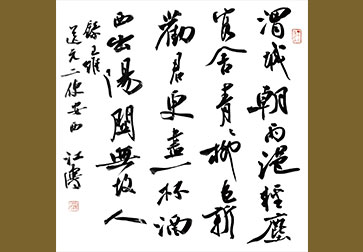 渭城朝雨浥轻尘
客舍青青柳色新
劝君更尽一杯酒
西出阳关无故人
录王维
送元二使安西 江涛